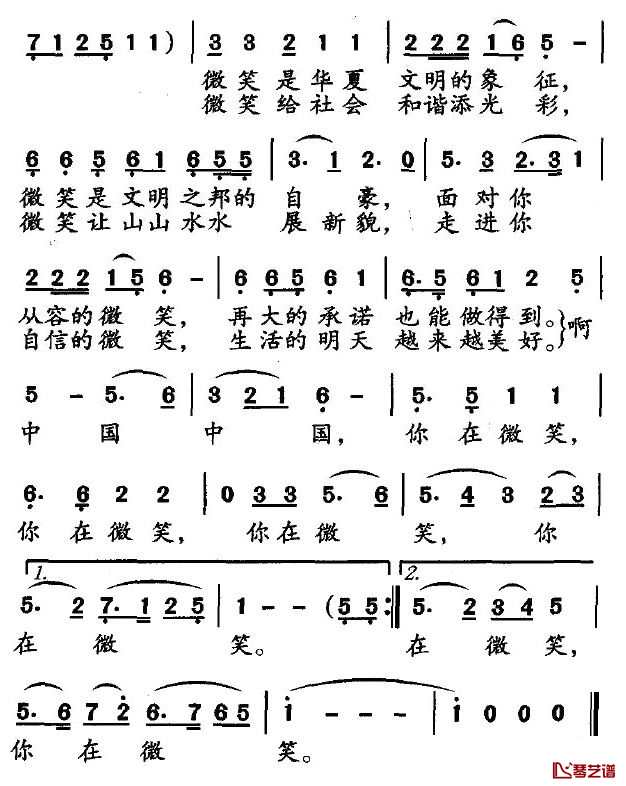 7 1 2 5 1 1 ) | 3 3 2 1 1 | 2 2 2 1 6 5 - |
微笑是华夏 文明的象 征,
微笑给社会 和谐添光 彩,
6 6 5 6 1 6 5 5 | 3· 1 2· 0 | 5· 3 2· 3 1 |
微笑是文明之邦的 自 豪, 面对你
微笑让山山水水 展新貌, 走进你
2 2 2 1 5 6 - | 6 6 5 6 1 | 6· 5 6 1 2 5 |
从容的微 笑, 再大的承诺 也能做得到。}啊
自信的微 笑, 生活的明天 越来越美好。}
5 - 5· 6 | 3 2 1 6 - | 5· 5 1 1 |
中 国 中 国, 你在微笑,
6· 6 2 2 | 0 3 3 5· 6 | 5· 4 3 2 3 |
你在微笑, 你在微 笑, 你
1. 2.
5· 2 7· 1 2 5 | 1 - - ( 5 5 :‖ 5· 2 3 4 5 |
在 微 笑。 在微笑,
5· 6 7 2 6· 7 6 5 | i - - - | i 0 0 0 ‖
你在微 笑。
琴艺谱